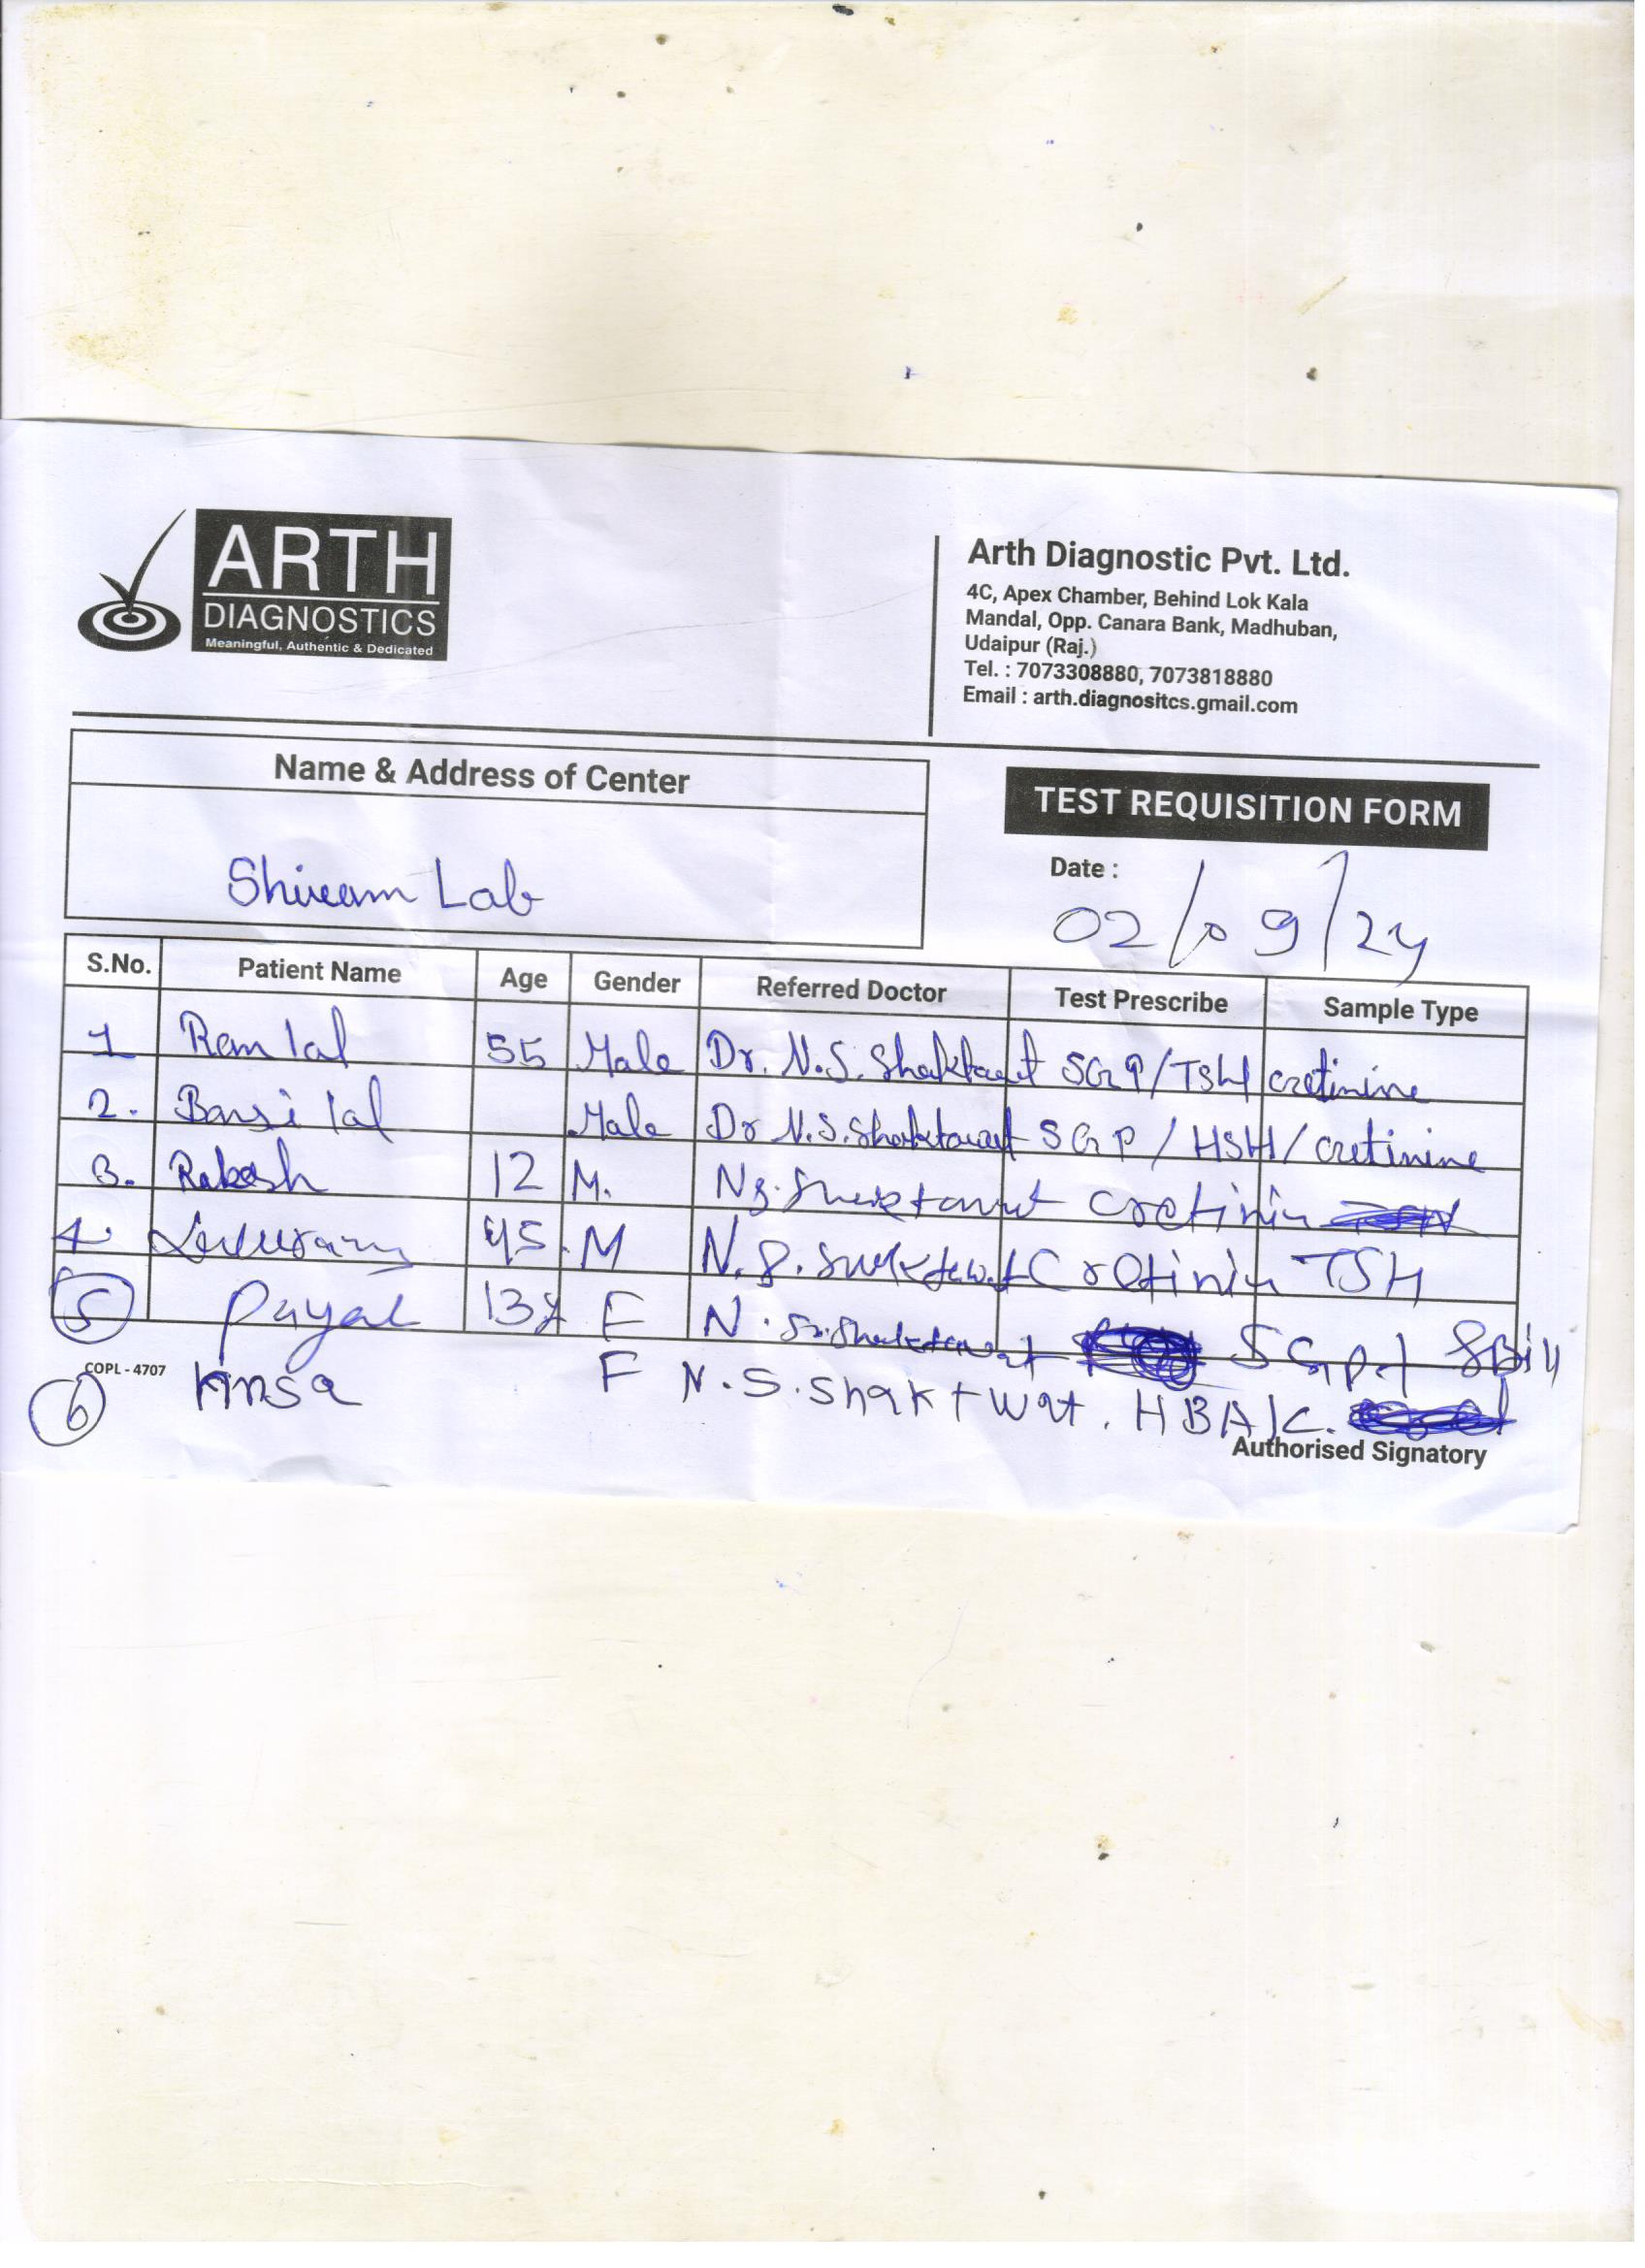 ARTH
DIAGNOSTICS
Meaningful, Authentic & Dedicated
Arth Diagnostic Pvt. Ltd.
4C, Apex Chamber, Behind Lok Kala
Mandal, Opp. Canara Bank, Madhuban,
Udaipur (Raj.)
Tel. : 7073308880, 7073818880
Email : arth.diagnositcs.gmail.com
Name & Address of Center
Shivam Lab
TEST REQUISITION FORM
Date :
02/09/24
S.No. Patient Name Age Gender Referred Doctor Test Prescribe Sample Type
1 Ram lal 55 Male Dr. N.S. Shaktawat SGP/TSH cretinine
2. Bansi lal Male Dr N.S. Shaktawat SGP / HSH / cretinine
3. Rakesh 12 M. N S. Shaktawat Cretinin
4. 45. M N. S. Shaktawat Cretinin TSH
5 Payal 13y F N. S. Shaktawat SGPT SBill
COPL - 4707
6 Kinsa F N.S. Shaktwat. HBA1C.
Authorised Signatory